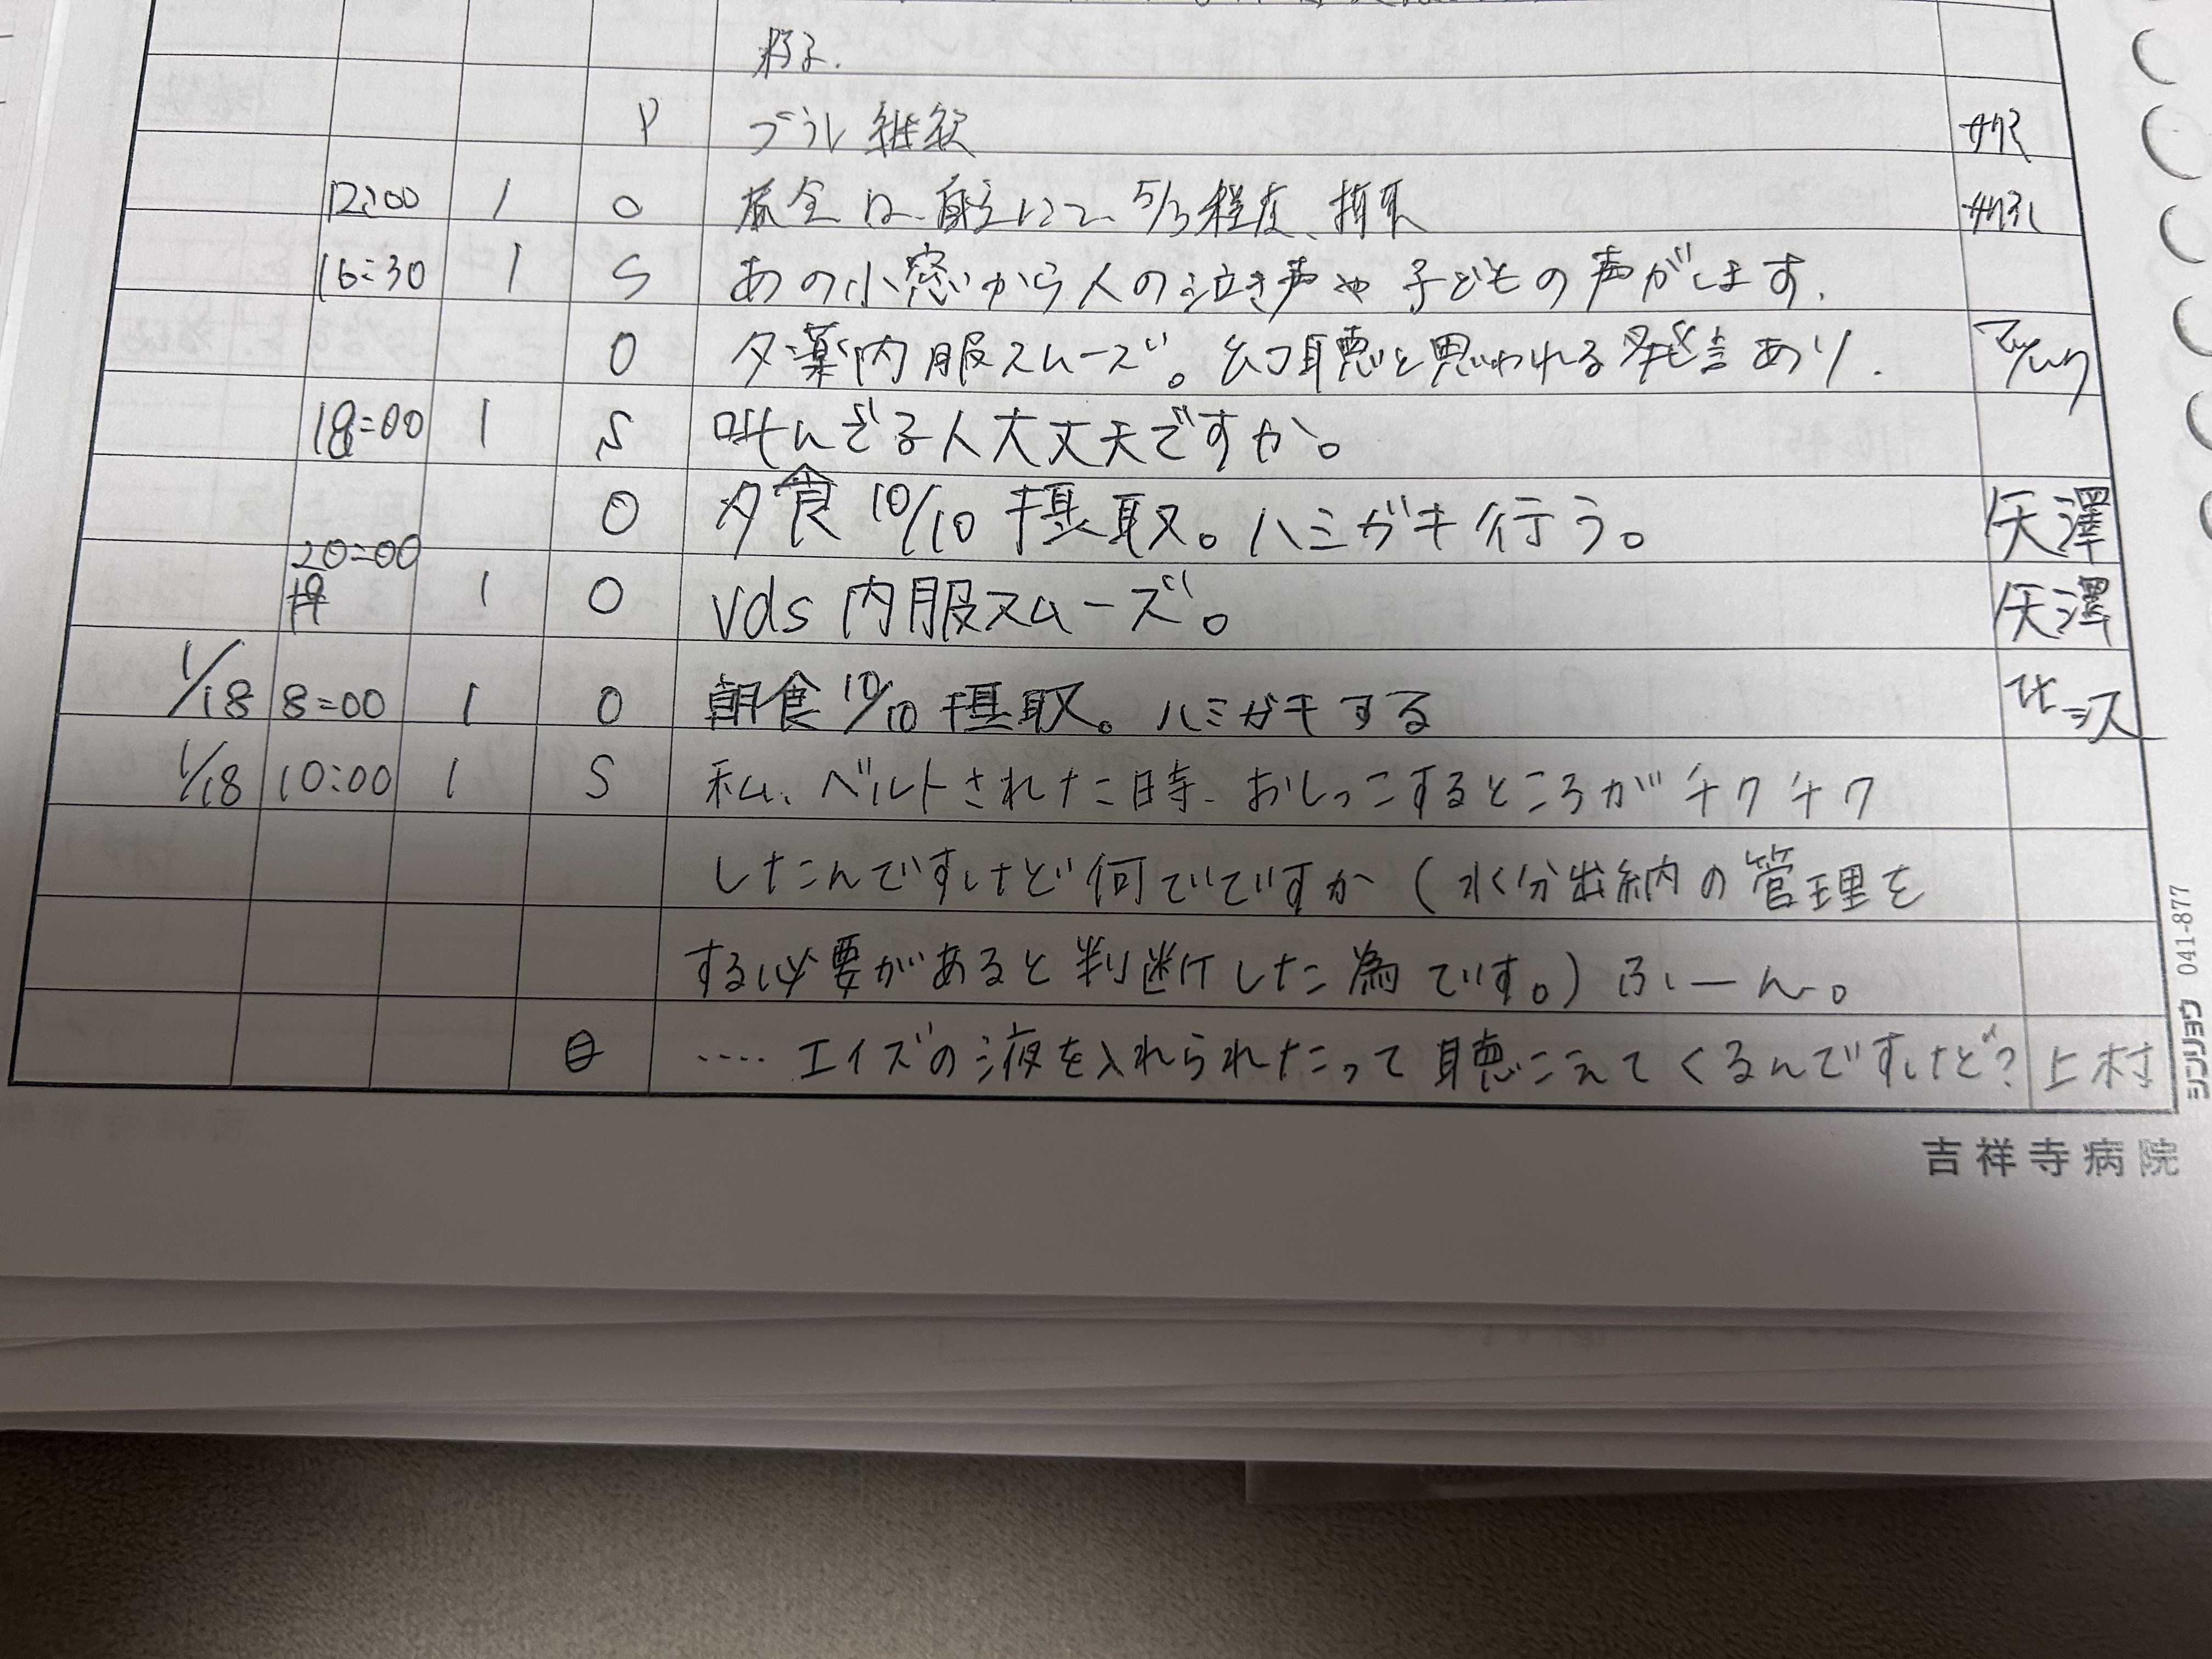 様子.
P プラン継続
12:00 1 O 昼食は、自立にて、5/3程度、摂取
16:30 1 S あの小窓から人の泣き声や子どもの声がします.
O 夕薬内服スムーズ。幻聴と思われる発言あり.
18:00 1 S 叫んでる人大丈夫ですか。
O 夕食 10/10 摂取。ハミガキ行う。 矢澤
20:00 1 O vds 内服スムーズ。 矢澤
1/18 8:00 1 O 朝食 10/10 摂取。ハミガキする
1/18 10:00 1 S 私、ベルトされた時、おしっこするところがチクチク
したんですけど何でですか(水分出納の管理を
する必要があると判断した為です。)ふーん。
‥‥エイズの液を入れられたって聴こえてくるんですけど? 上村
シンリョウ 041-877
吉祥寺病院